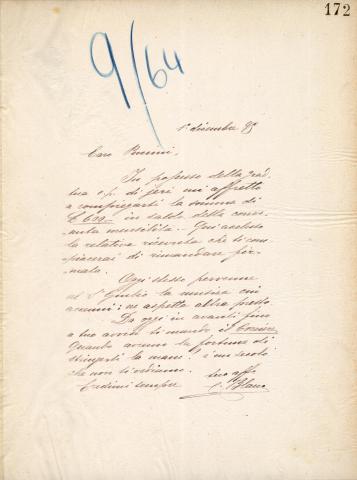 172
9/64
1º dicembre 95
Caro Puccini,
In possesso della grad.
tua c.p. di jeri mi affretto
a compiegarti la somma di
£ 600.- in saldo delle
mensilità. Qui accluso
la relativa ricevuta che ti com-
piacerai di rimandare fir-
mata.
Oggi stesso pervenne
al Sr. Giulio la musica cui
accenni; ne aspetta altra presto.
Da oggi in avanti fino
a tuo avviso ti mando il Corriere.
Quando avremo la fortuna di
stringerti la mano? è un secolo
che non ti vediamo.
Credimi sempre
tuo affo.
C. Blanc